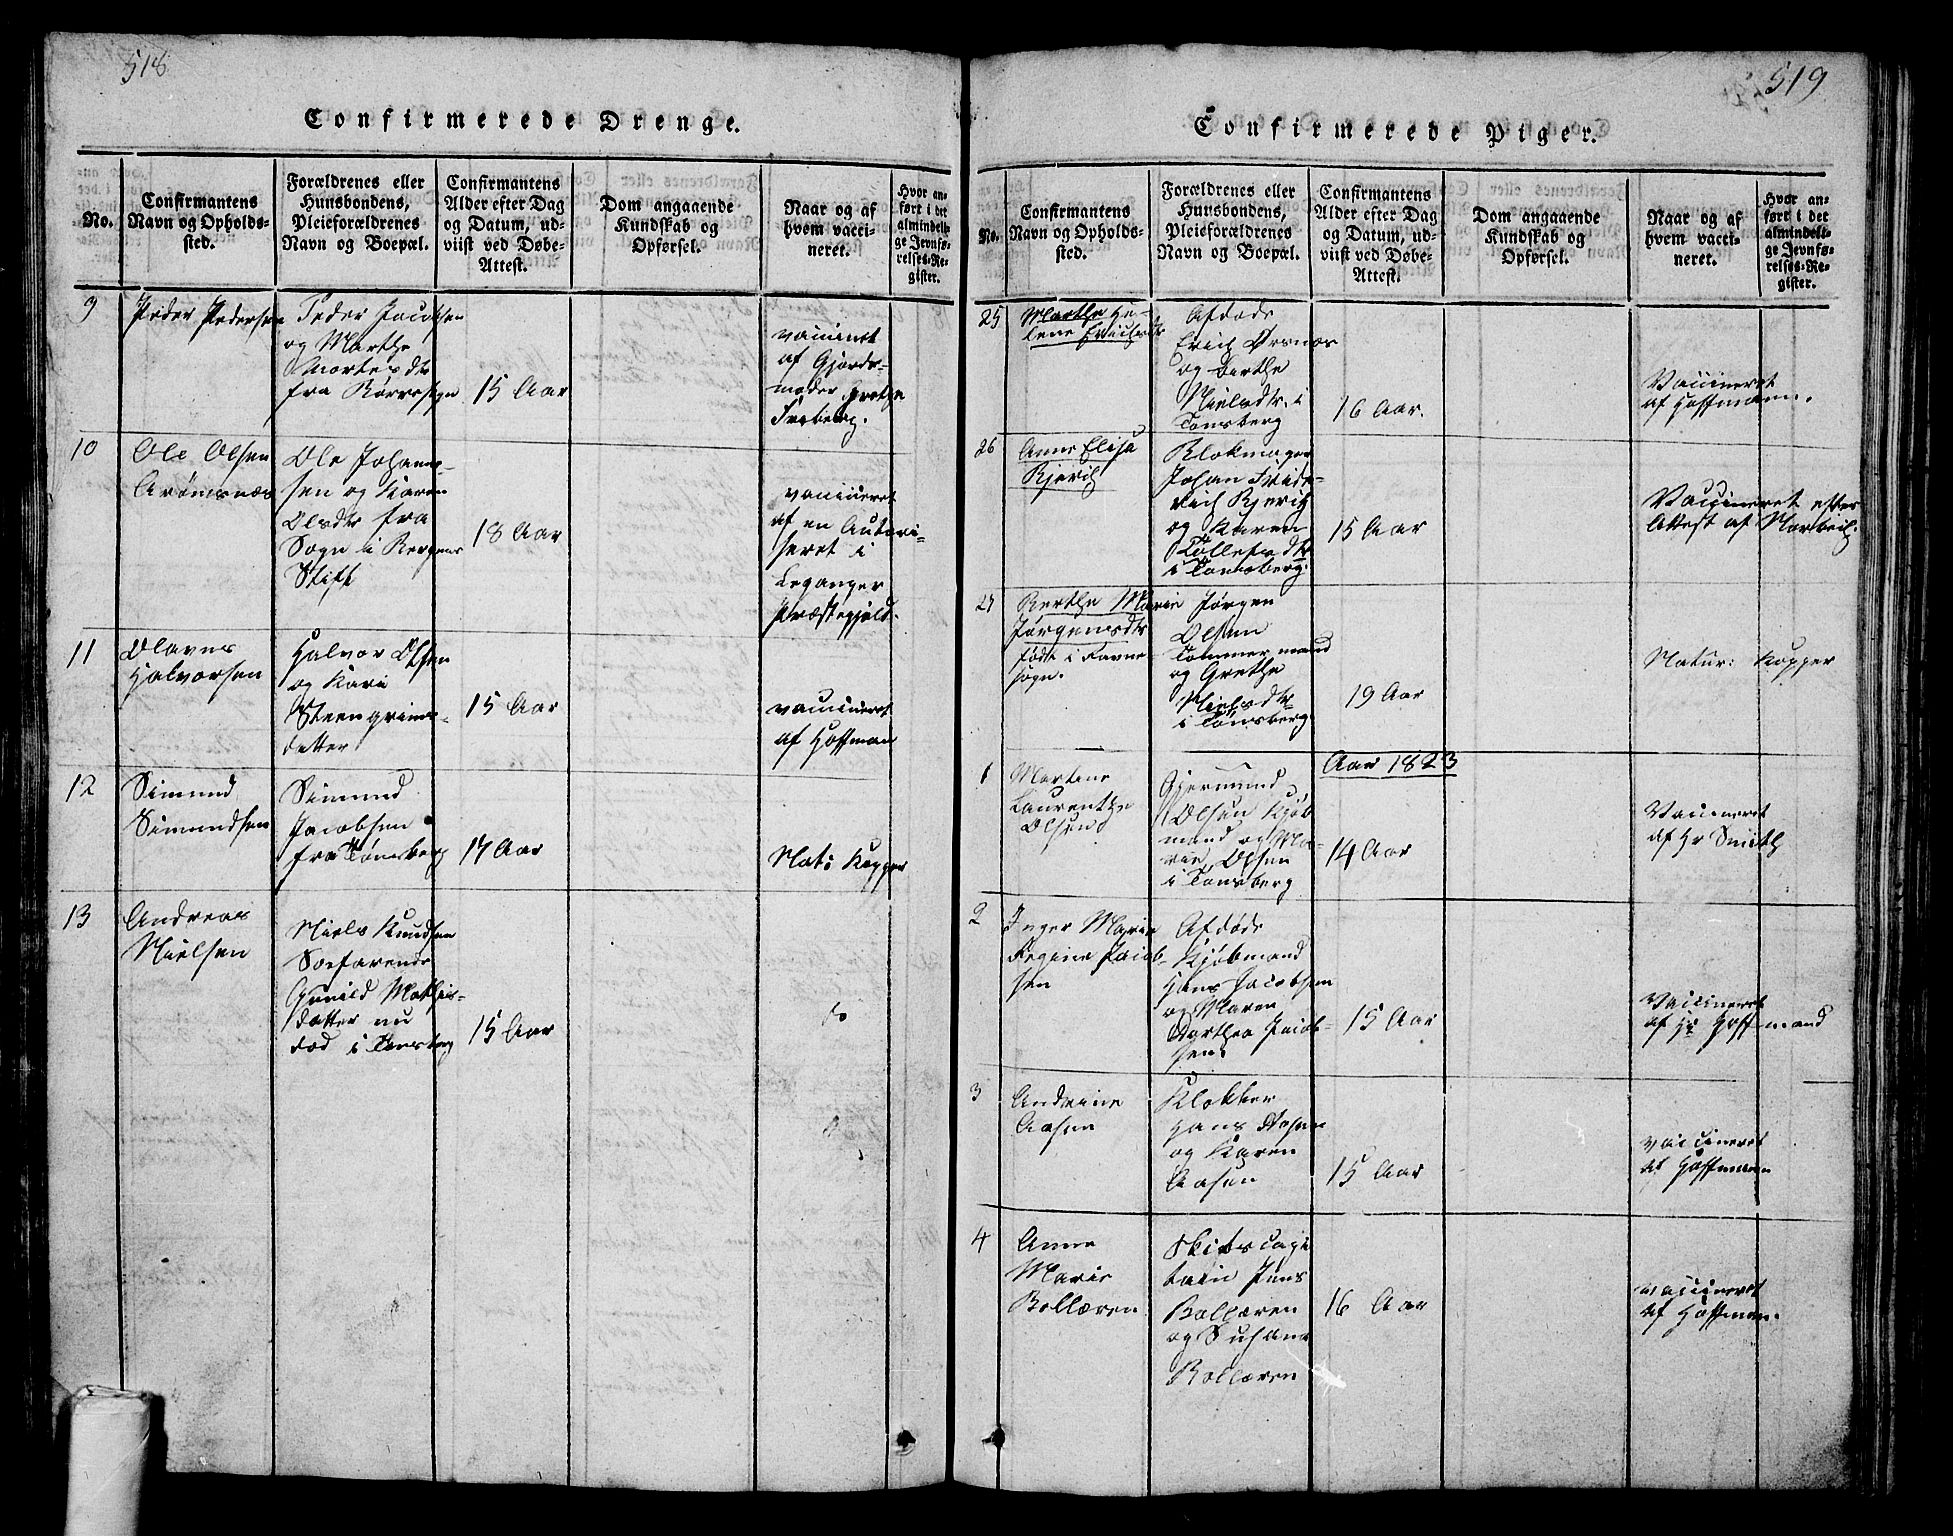 518
Confirmerede Drenge.
No.
Confirmantens
Navn og Opholds-
sted.
Forældrenes eller
Huusbondens,
Pleieforældrenes
Navn og Boepæl.
Confirmantens
Alder efter Dag
og Datum, ud-
viist ved Døbe-
Attest.
Dom angaaende
Kundskab og
Opførsel.
Naar og af
hvem vacci-
neret.
Hvor an-
ført i det
almindeli-
ge Jevnfø-
relses-Re-
gister.
9
Peder Pedersen
Peder Jacobsen
og Marthe
Mortesdtr
fra Borresogn
15 Aar
vaccineret
af Gjords-
moder Grethe
10
Ole Olsen
Ole Johanne-
sen og Karen
Olsdtr fra
Sogn i Bergens
Stift
18 Aar
vaccineret
af en Autori-
seret i
Leganger
Præstegjeld.
11
Olaves
Halvorsen
Halvor Olsen
og Kari
Steengrims-
datter
15 Aar
vaccineret
af Hoffman
12
Simund
Simundsen
Simund
Jacobsen
fra Tønsberg
17 Aar
Nat: Kopper
13
Andreas
Nielsen
Niels Knudsen
Søefarende
Gunild Mathis-
datter nu
død i Tønsberg
15 Aar
do
519
Confirmerede Piger.
No.
Confirmantens
Navn og Opholds-
sted.
Forældrenes eller
Huusbondens,
Pleieforældrenes
Navn og Boepæl.
Confirmantens
Alder efter Dag
og Datum, ud-
viist ved Døbe-
Attest.
Dom angaaende
Kundskab og
Opførsel.
Naar og af
hvem vacci-
neret.
Hvor an-
ført i det
almindeli-
ge Jevnfø-
relses-Re-
gister.
25
Marthe He-
lene Erichsdtr
Afdøde
Erich Orsnes
og Berthe
Nielsdtr. i
Tønsberg
16 Aar.
Vaccineret
af Hoffmann.
26
Anne Elisa
Bjerch
Blokmager
Johan Fride-
rich Bjerch
og Karen
Tollefsdtr
i Tønsberg.
15 Aar
Vaccineret efter
Attest af
27
Berthe Marie
Jørgensdtr
født i
sogn.
Jørgen
Olsen
Tømmermand
og Grethe
Nielsdtr
i Tønsberg
19 Aar
Natur: Kopper
Aar 1823
1
Martine
Laurentze
Olsen
Gjermund
Olsen Kjøb
mand og Ma-
rie Olsen
i Tønsberg
14 Aar
Vaccineret
af Hr Smith
2
Inger Marie
Regine Jacob-
sen
Afdøde
Kjøbmand
Hans Jacobsen
og Maren
Dorthea Jacob-
sen.
15 Aar
Vaccineret
af Hr Hoffmand
3
Andrine
Aasen
Klokker
Hans Aasen
og Karen
Aasen
15 Aar
vaccineret
af Hoffmann
4
Anne
Marie
Bollæren
Skibscapi
tain Jens
Bollæren
og Susane
Bollæren
16 Aar
vaccineret
af Hoffman.